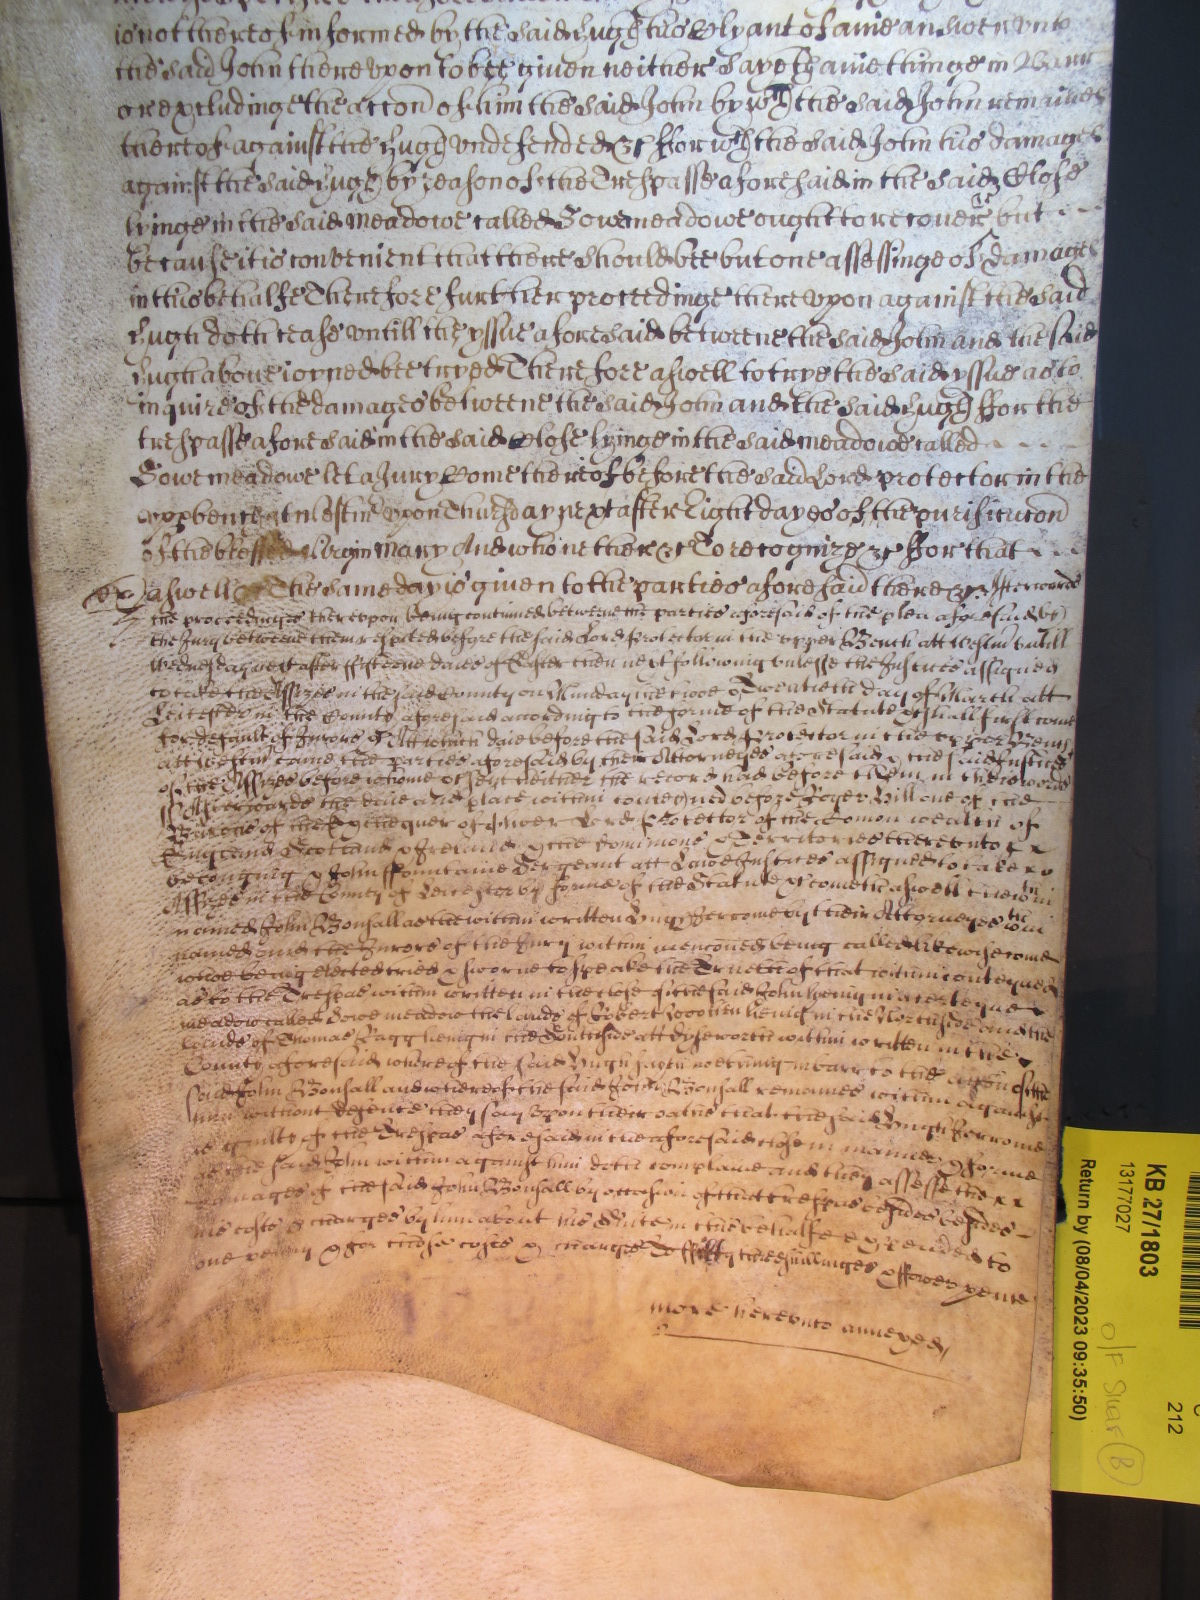 is not thereof informed by the said Hugh his Clyant or anie answer unto
the said John thereupon to bee given neither sayeth anie thinge in Barr
or excludinge the accon of him the said John by wch the said John remaines
thereof against the Hugh undefended &c ffor wch the said John his damages
against the said Hugh by reason of the Trespasse aforesaid in the said Close
lyinge in the said meadowe called Sowemeadowe ought to recover &c but
because it is convenient that there should bee but one assessinge of damages
in this behalfe Therefore further proceedinge thereupon against the said
Hugh doth cease untill the yssue aforesaid betweene the said John and the said
Hugh above ioyned bee tryed Therefore aswell to trye the said yssue as to
inquire of the damages betweene the said John and the said Hugh ffor the
trespasse aforesaid in the said Close lyinge in the said meadowe called
Sowemeadowe let a Jury Come thereof before the said Lord protector in the
upp bench at Westm upon Thursday next after Eight dayes of the purificacon
of the blessed Virgin Mary And who neither &c To recognize &c ffor that
aswell &c The same day is given to the parties aforesaid there &c Afterwards
the proceedinges thereupon being continued betweene the parties aforesaid of the plea aforesaid by
the Jury betweene them respited before the said Lord Protector in the upper Bench att Westm untill
Wednesday next after fifteene daies of Easter then next following unlesse the Justices assigned
to take the Assizes in the said County on Munday the twoe & Twentieth day of March att
Leicester in the County aforesaid according to the forme of the Statute &c shall first come
for default of Jurors &c Att which daie before the said Lord Protector in the upper Bench
att Westm came the parties aforesaid by their Attorneyes aforesaid & the said Justices
of the Assizes before whome &c sent hither the record had before them in theis words
ss Afterwards the daie and place within conteyned before Roger Hill one of the
Barons of the Exchequer of Oliver Lord Protector of the Comon wealth of
England Scotland & Ireland & the Dominions & Territories thereunto
belonging & John ffountaine Sergeant att Lawe Justices assigned to take
Assizes in the County of Leicester by forme of the Statute &c cometh aswell the wthin
named John Bonsall as the within written Hugh by their Attorneyes wthin
named and the Jurors of the Jury within mencioned being called likewise come
whoe being elected tried & sworne to speake the Trueth of that within conteyned
as to the Trespas within written in the close of the said John lyeing in a certeyne
meadow called Sowe meadow the lands of Robert lieng in the Northside and the
lands of Thomas Ragg lieng in the Southside att Dyseworth within written in the
County aforesaid whereof the said Hugh sayeth nothing in barr to the accon of the
said John Bonsall and whereof the said John Bonsall remaines within against
him without defence they say upon their oathe that the said Hugh
is guilty of the Trespas aforesaid in the aforesaid close in manner & forme
as the said John within against him doth complaine and they assesse the
damages of the said John Bonsall by occasion of that trespas besides
his costs & charges by him about his Suite in this behalfe expended to
one penny & for those costs & charges to fifty three shillinges & ffower pence
more hereunto annexed
KB 27/1803
13177027
Return by (08/04/2023 09:35:50)
212
O/F
B